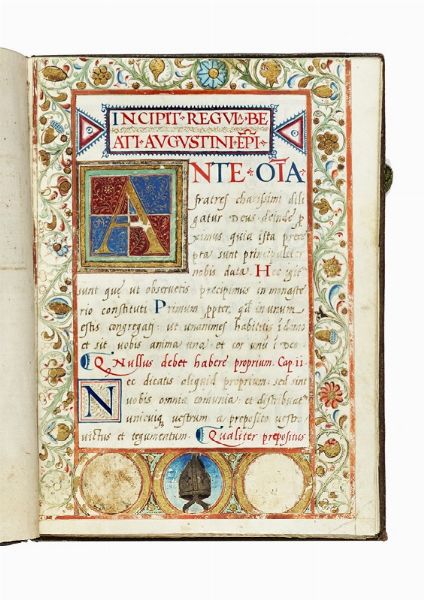 INCIPIT · REGVL · BE
ATI · AVGVSTINI · EPI ·
ANTE · OIA
fratres charissimi dili
gatur Deus deinde p
ximus quia ista prece
pta sunt principaliter
nobis data. Hec igit
sunt que ut observetis precipimus in monaste
rio constituti Primum ppter qd in unum
estis congregati ut unanimes habitetis i domo
et sit vobis anima una et cor unū i Deo
Nullus debet habere proprium. Cap ii
Nec dicatis aliquid proprium sed sint
vobis omnia comunia et distribuat'
unicuiq vestrum a preposito vestro
victus et tegumentum. Qualiter prepositus